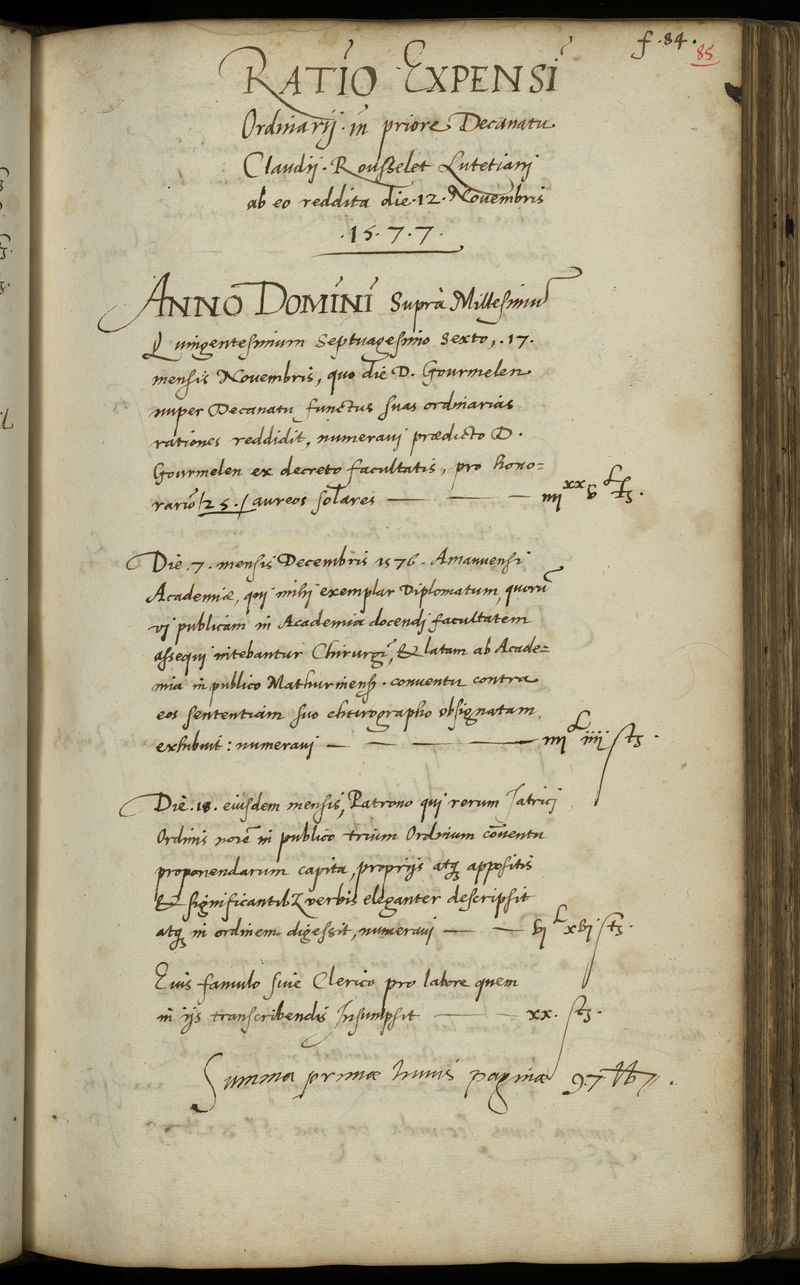 f. 84.
85
RATIO EXPENSI
Ordinarij. in priore Decanatu
Claudij. Rousselet Lutetianj
ab eo reddita die. 12. Novembris
.1577.
ANNO DOMINI Suprà Millesimū
Quingentesimum Septuagesimo Sexto, .17.
mensis Novembris, quo die D. Gourmelen
nuper Decanatu functus suas ordinarias
rationes reddidit, numeravi prædicto D.
Gourmelen ex decreto facultatis, pro hono=
rario /25./ aureos solares — — — iiij xx v L ts.
Die .7. mensis Decembris 1576. Amanuensi
Academiæ, qui mihi exemplar Diplomatum, quorū
vi publicam in Academia docendi facultatem
assequi nitebantur Chirurgi, & latam ab Acade=
mia in publico Mathurinens. conventu contra
eos sententiam suo chirographo obsignatam
exhibuit : numeravi — — — iiij L iiij ts.
Die. 18. eiusdem mensis, Patrono qui rerum Iatrici
Ordinis noīe in publico trium Ordinum cōventu
proponendarum capita, proprijs atq; appositis
& significantib; verbis eleganter descripsit
atq; in ordinem digessit, numeravi — — vj L xvj ts.
Eius famulo sive Clerico pro labore quem
in ijs transcribendis Insumpsit — — xx. ts.
Summa primæ huius paginæ 97 lb